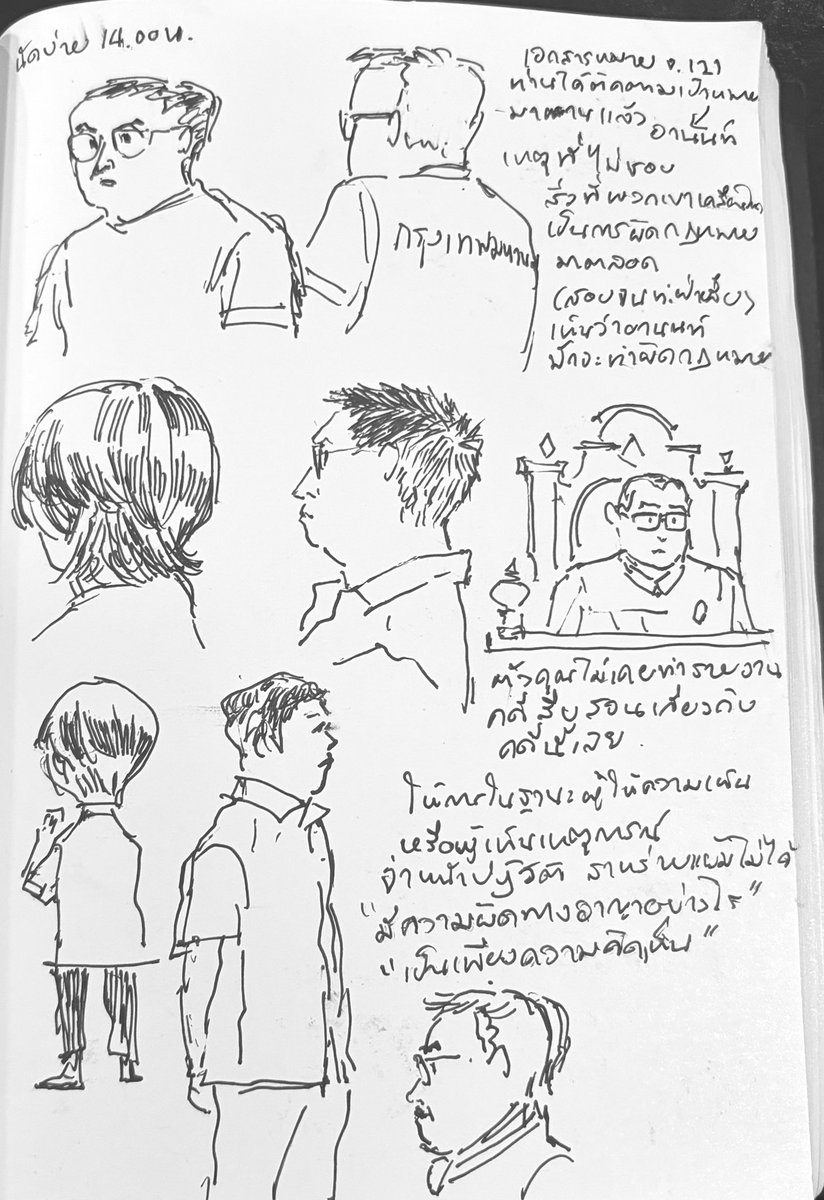 นัดบ่าย 14.00 น.
เอกสารหมาย จ.121
ท่านได้ติดตามเป้าหมาย
มานานแล้ว อานนท์
เหตุที่ไม่ชอบ
สิ่งที่พวกเขาเคลื่อนไหว
เป็นการผิดกฎหมาย
มาตลอด
เห็นว่าอานนท์
น่าจะทำผิดกฎหมาย
กรุงเทพมหานคร
ตัวคุณไม่เคยทำรายงาน
คดี สืบสวนเกี่ยวกับ
คดีนี้เลย
ให้การในฐานะผู้ให้ความเห็น
หรือผู้เห็นเหตุการณ์
"มีความผิดทางอาญาอย่างไร"
"เป็นเพียงความคิดเห็น"